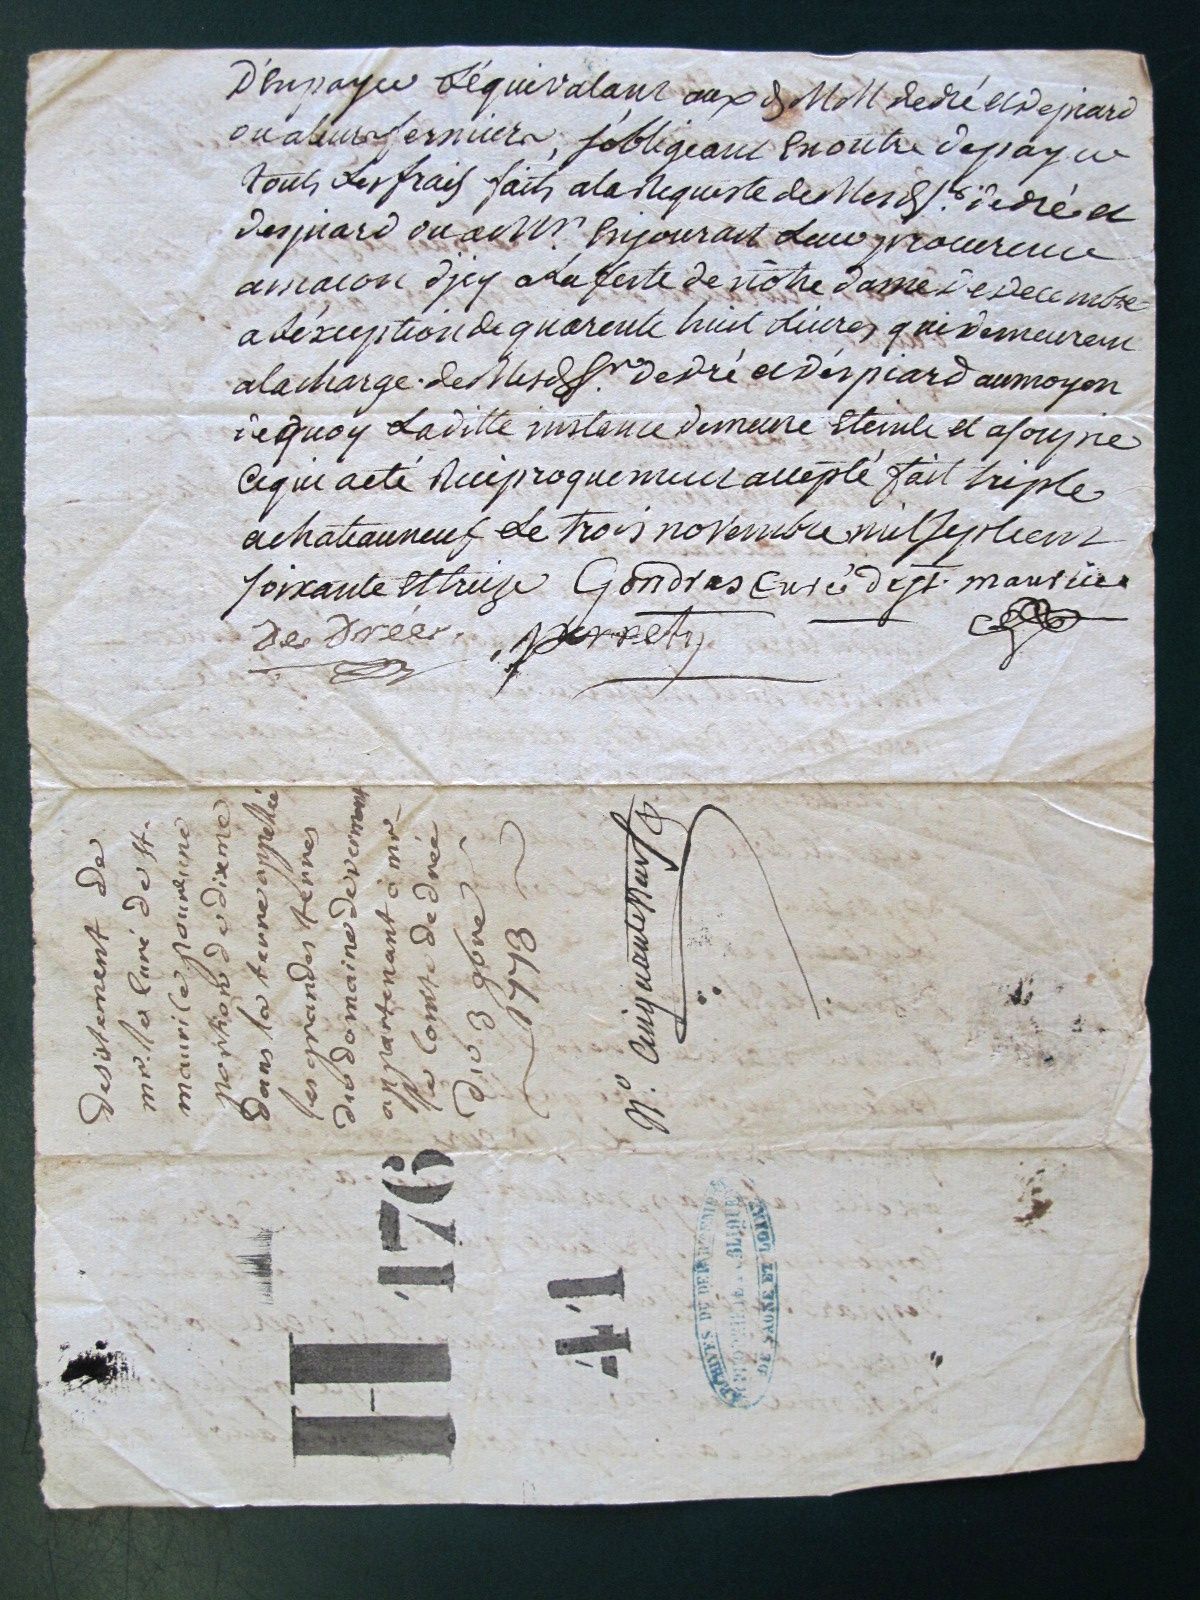 D'Enpayer L'équivalant aux d. MM dedré et Despiard
ou aleurs fermiers, s'obligeant En outre depayer
touts Les frais faits ala Requeste de Mesd. Srs. dedré et
despiard ou a Mr. Enjourant Leur procureur
amacon d'jcy a La feste de nôtre dame De Decembre
a L'éxception de quarente huit Livres qui demeurent
alacharge de Mesd. Srs. Dedré et Déspiard aumoyen
dequoy Laditte instance demeure Eteinte et assoupie
Cequi a eté Réciproquement accepté fait triple
achateauneuf Le trois novembre mil Septcent
soixante Et treize Gondras Curé de st. maurice
De Drée. perrety
Desistement de
mr. le Curé de st.
maurice pour une
portion de dixme
dans la terre appellée
les grandes terres
du domaine de vermont
appartenant à mr
le Comte de drée
du 3 9bre
1773
N.o Cinquante Neuf
H 176
41
ARCHIVES DU DEPARTEMENT
DE SAÔNE ET LOIRE